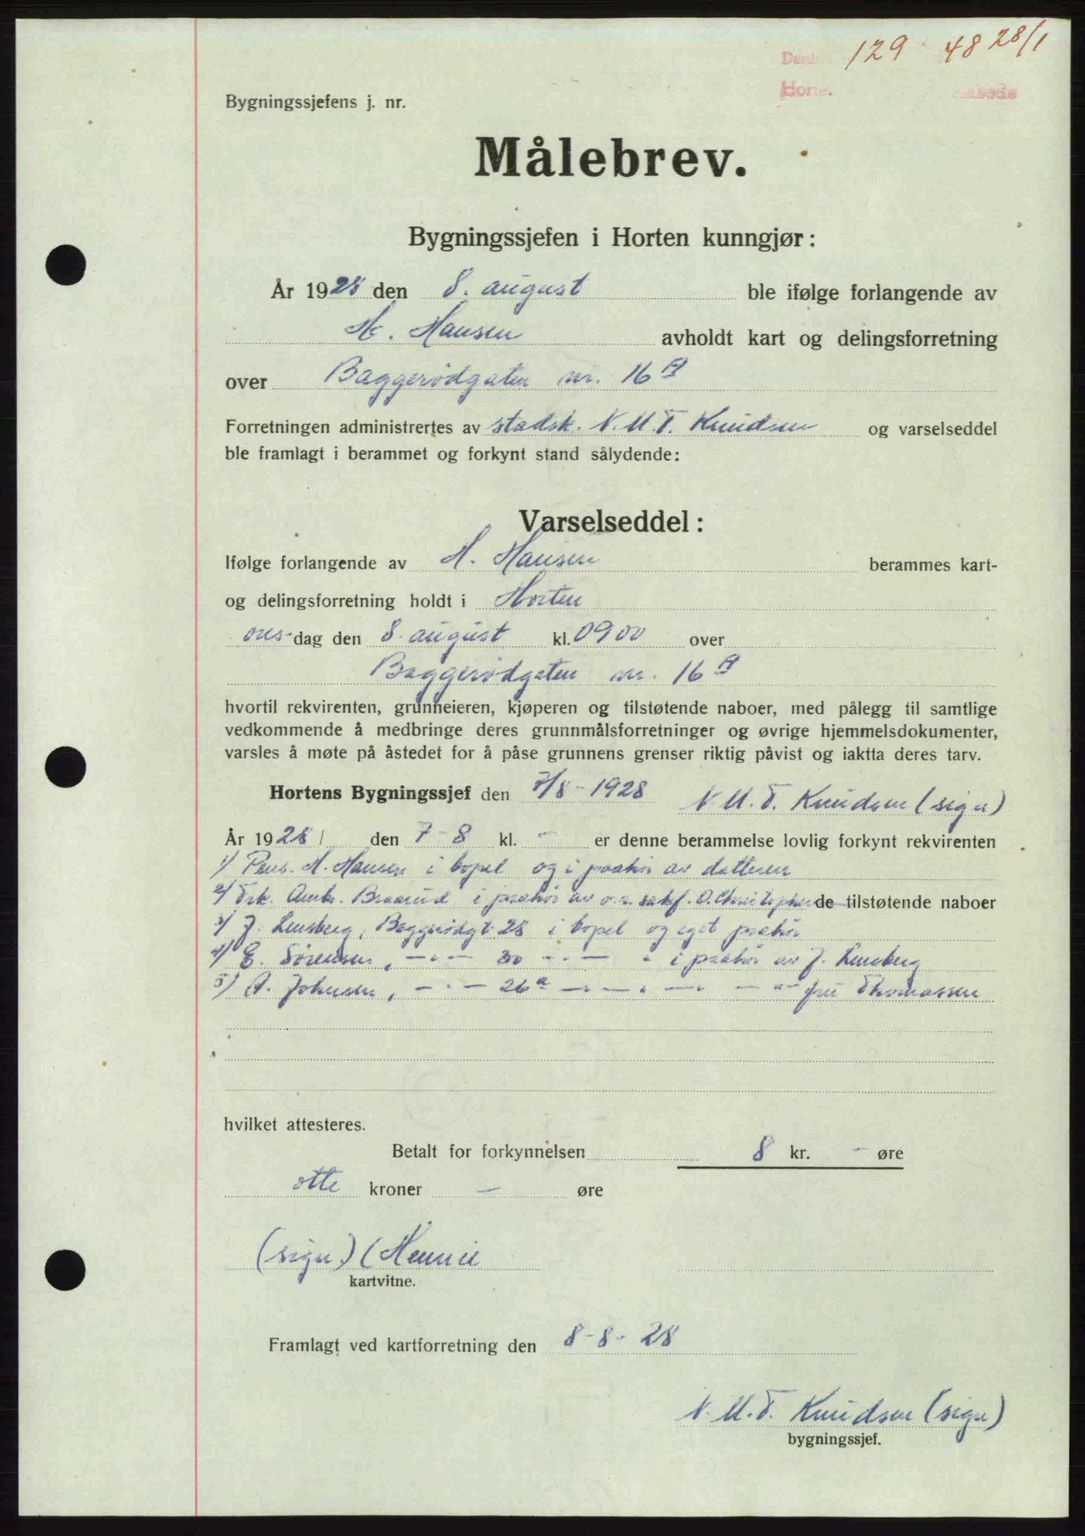 129 48 28/1
Horte
Bygningssjefens j. nr.
Målebrev.
Bygningssjefen i Horten kunngjør:
År 1928 den 8. august ble ifølge forlangende av
H. Hansen avholdt kart og delingsforretning
over Baggerødgaten nr. 16 A
Forretningen administrertes av stadsk. N. M. T. Knudsen og varselseddel
ble framlagt i berammet og forkynt stand sålydende:
Varselseddel:
Ifølge forlangende av H. Hansen berammes kart-
og delingsforretning holdt i Horten
ons-dag den 8. august kl. 0900 over
Baggerødgaten nr. 16 A
hvortil rekvirenten, grunneieren, kjøperen og tilstøtende naboer, med pålegg til samtlige
vedkommende å medbringe deres grunnmålsforretninger og øvrige hjemmelsdokumenter,
varsles å møte på åstedet for å påse grunnens grenser riktig påvist og iaktta deres tarv.
Hortens Bygningssjef den 7/8-1928 N. M. T. Knudsen (sign)
År 1928 den 7-8 kl. - er denne berammelse lovlig forkynt rekvirenten
1/ Pens. H. Hansen i bopel og i paahør av datteren
2/ Ambr. Braarud i paahør av o.r. sakf. O. Christophersen de tilstøtende naboer
3/ J. Lensberg, Baggerødgt. 28 i bopel og eget paahør
4/ E. Sørensen, -"- 30 -"- " i paahør av J. Lensberg
5/ A. Johnsen, -"- 26a -"- -"- - av fru Thomassen
hvilket attesteres.
Betalt for forkynnelsen 8 kr. - øre
otte kroner - øre
(sign.)
kartvitne.
Framlagt ved kartforretning den 8-8-28
N. M. T. Knudsen (sign)
bygningssjef.